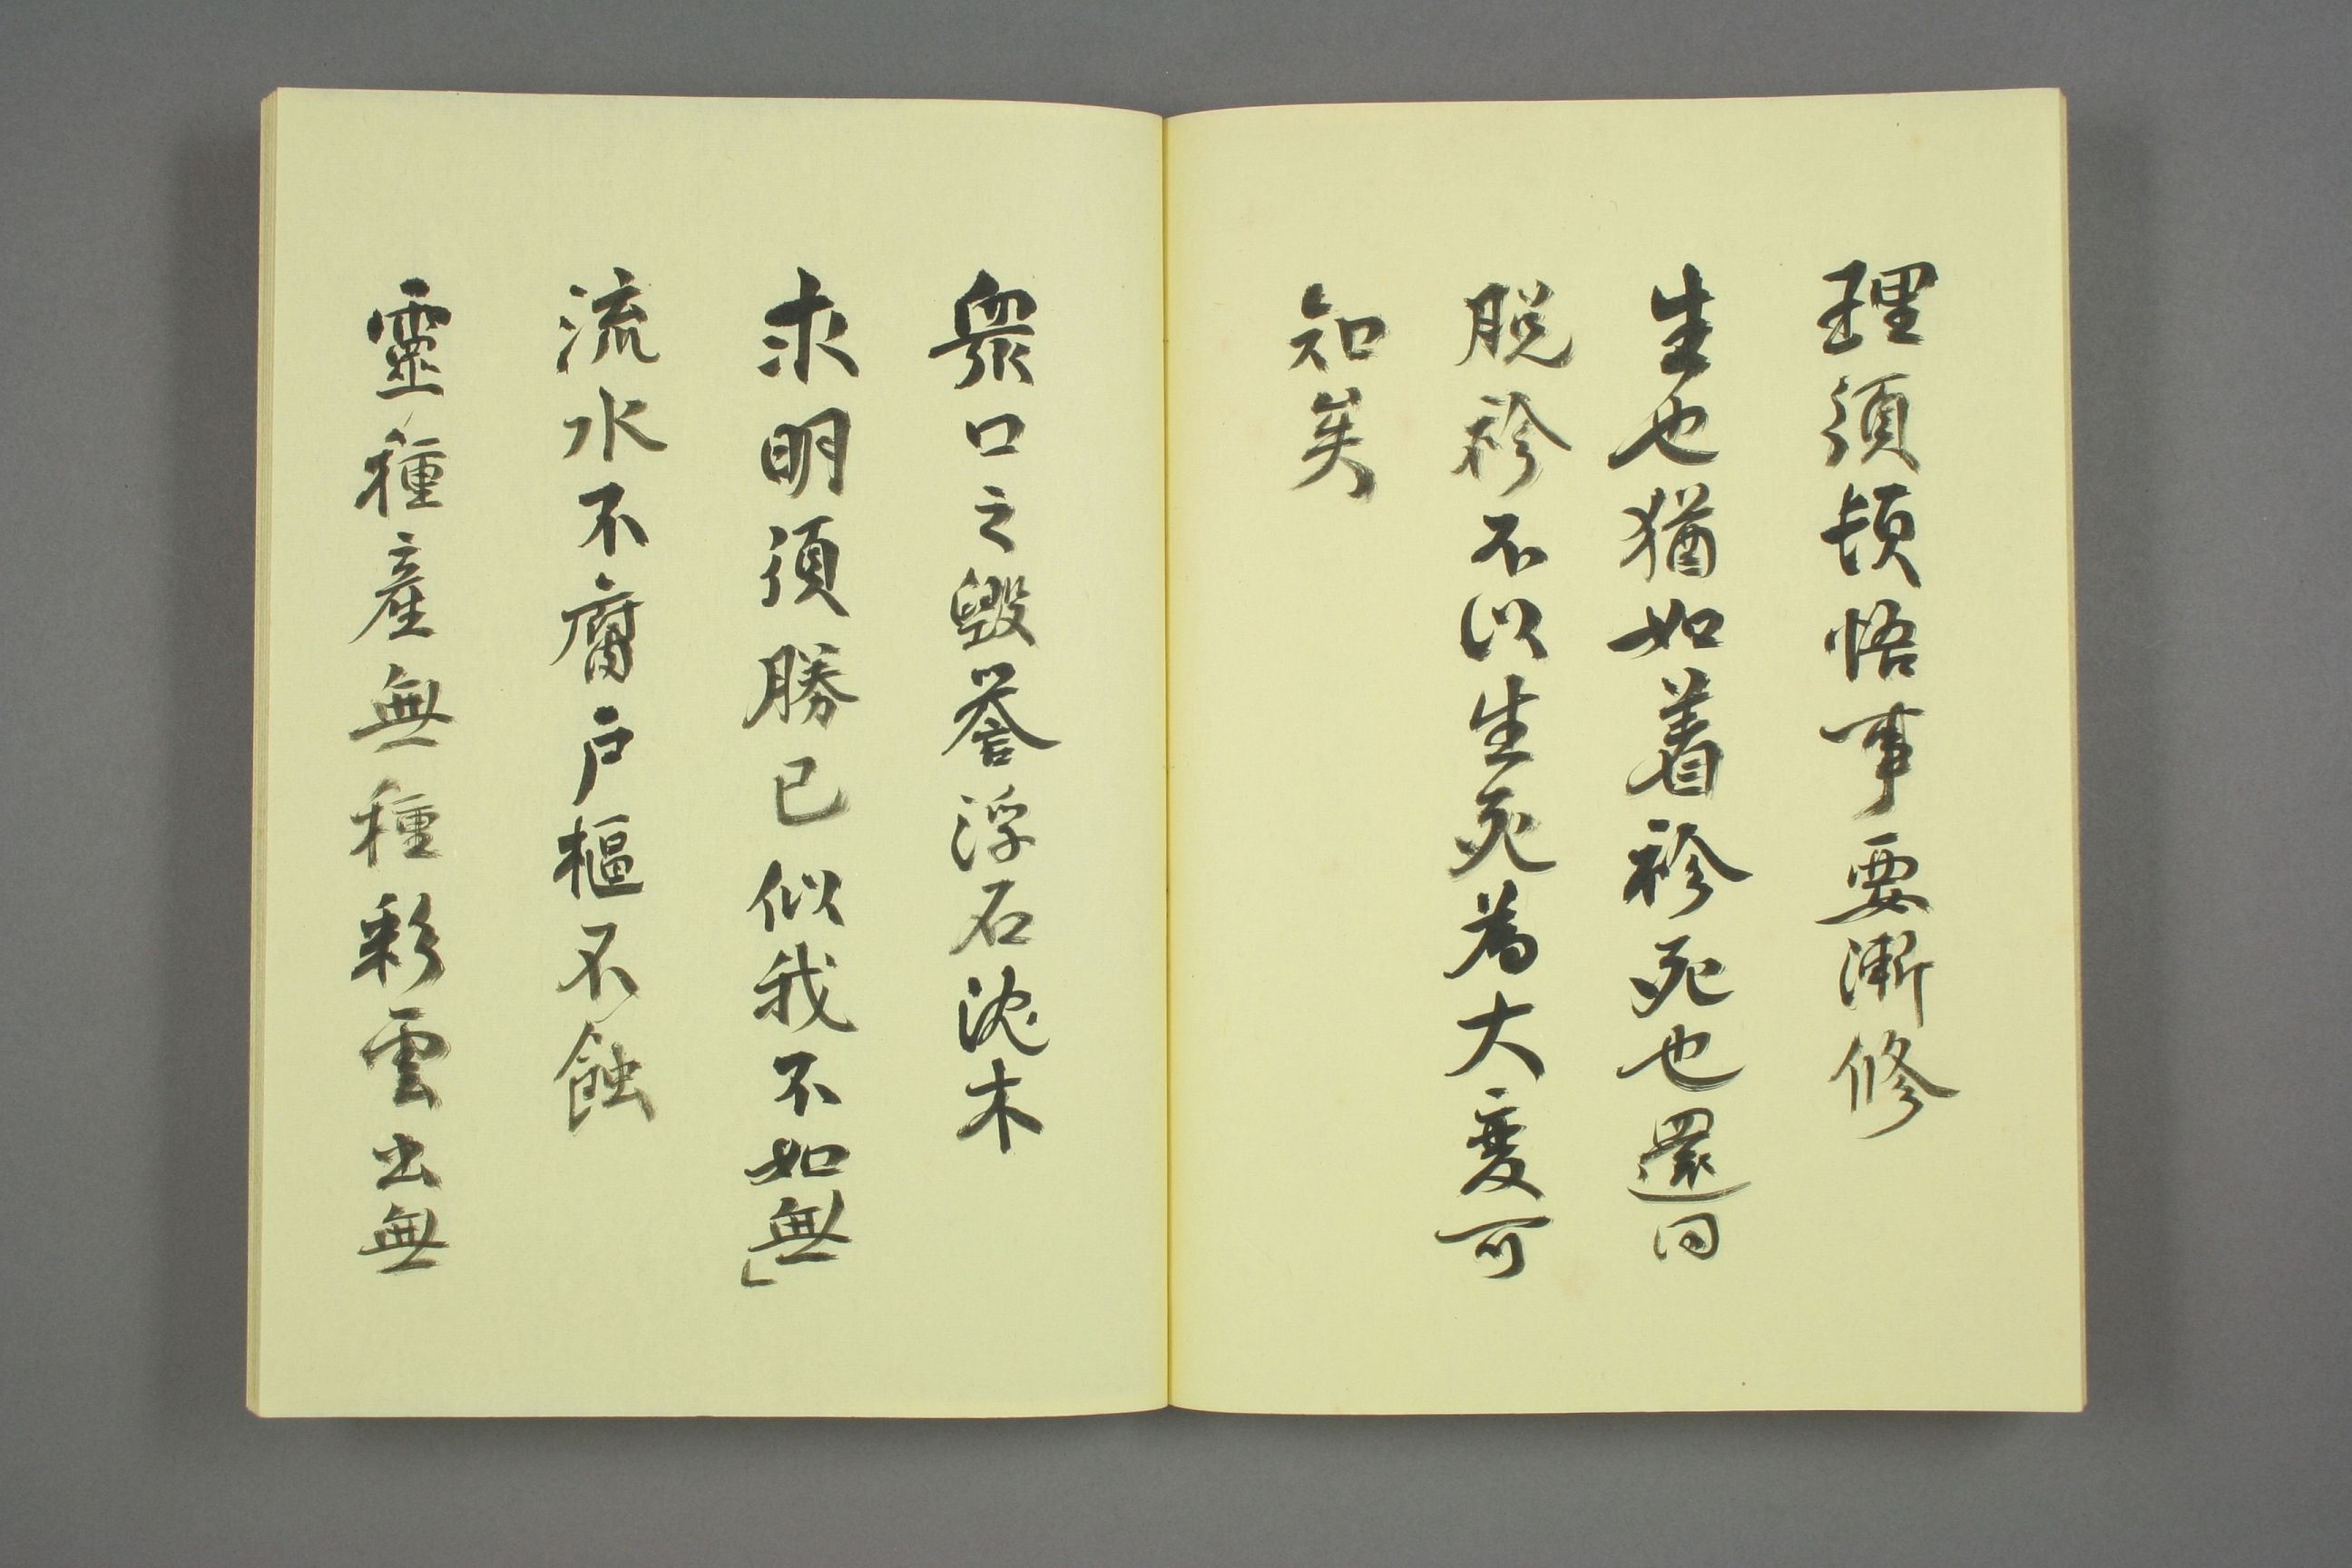 理須頓悟事要漸修
生也猶如着衫死也還同
脱衫不以生死為大変可
知矣
衆口之毀誉浮石沈木
求明須勝己似我不如無」
流水不腐戸樞不蝕
靈種産無種彩雲出無